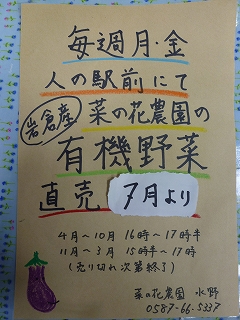 毎週月・金
人の駅前にて
岩倉産
菜の花農園の
有機野菜
直売 7月より
4月〜10月 16時〜17時半
11月〜3月 15時半〜17時
(売り切れ次第終了)
菜の花農園 水野
0587-66-5337